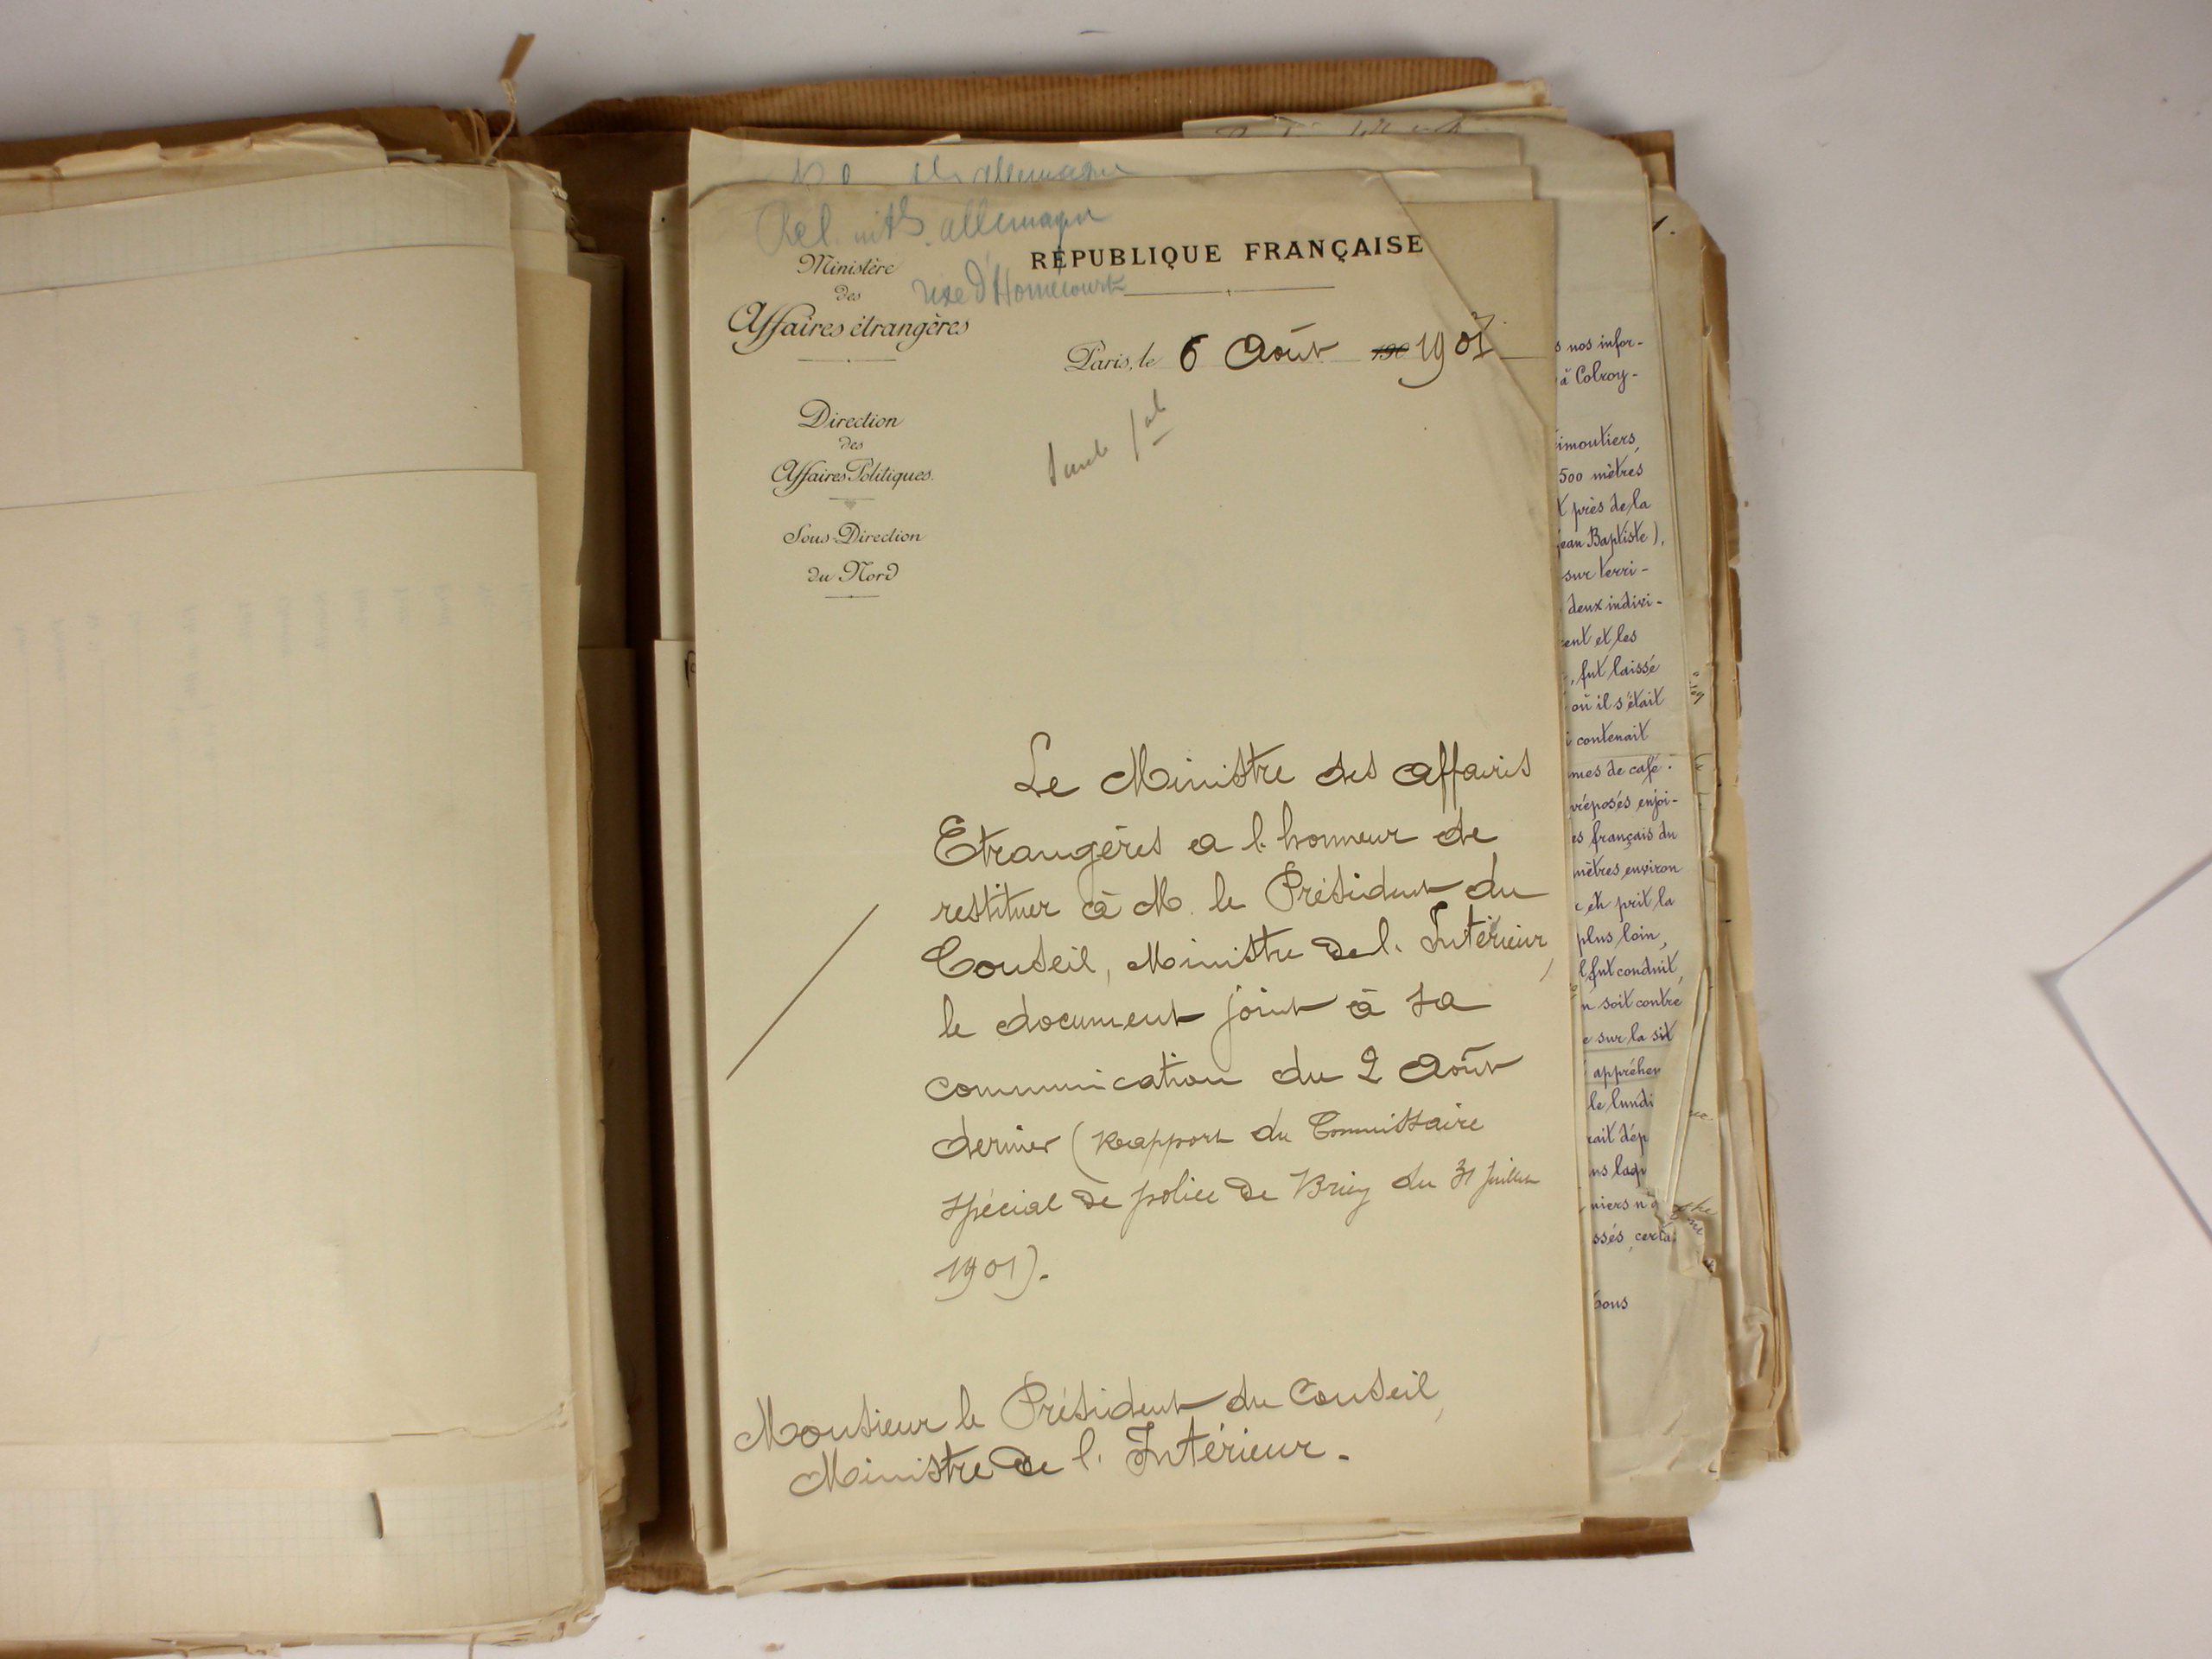 allemagne
Rel. allemagne
Ministère
des
Affaires étrangères
RÉPUBLIQUE FRANÇAISE
rixe d'Homécourt
Paris, le 6 Août 190 1901
Direction
des
Affaires Politiques.
Sous-Direction
du Nord
Le Ministre des Affaires
Etrangères a l'honneur de
restituer à M. le Président du
Conseil, Ministre de l'Intérieur,
le document joint à sa
communication du 2 Août
dernier (Rapport du Commissaire
spécial de police de Briey du 31 Juillet
1901).
Monsieur le Président du Conseil,
Ministre de l'Intérieur.
s nos infor-
à Colroy-
imoutiers,
500 mètres
t près de la
Jean Baptiste),
sur terri-
deux indivi-
ent et les
, fut laissé
où il s'était
i contenait
mes de café.
réposés enjoi-
es français du
mètres environ
et prit la
plus loin,
l fut conduit,
n soit contre
e sur la sit
appréhen
le lundi
rait dép
ns laqu
niers n'a
ssés, certa